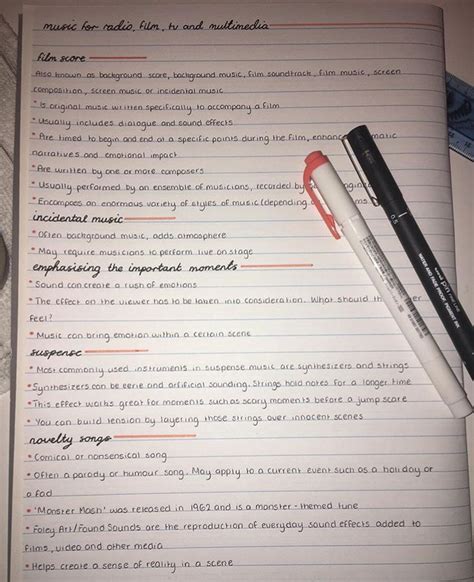 music for radio, film, tv and multimedia
film score
Also known as background score, background music, film soundtrack, film music, screen
composition, screen music or incidental music
• Is original music written specifically to accompany a film
• Usually includes dialogue and sound effects
• Are timed to begin and end at a specific points during the film, enhance matic
narratives and emotional impact
• Are written by one or more composers
• Usually performed by an ensemble of musicians, recorded by
• Encompases an enormous variety of styles of music (depending
incidental music
• Often background music, adds atmosphere
• May require musicians to perform live on stage
emphasising the important moments
• Sound can create a rush of emotions
• The effect on the viewer has to be taken into consideration. What should the
feel?
• Music can bring emotion within a certain scene
suspense
• Most commonly used instruments in suspense music are synthesizers and strings
• Synthesizers can be eerie and artificial sounding. Strings hold notes for a longer time
• This effect works great for moments such as scary moments before a jump scare
• You can build tension by layering those strings over innocent scenes
novelty songs
• Comical or nonsensical song
• Often a parody or humour song. May apply to a current event such as a holiday or
a fad
• 'Monster Mash' was released in 1962 and is a monster-themed tune
• Foley Art/Found Sounds are the reproduction of everyday sound effects added to
films, video and other media
• Helps create a sense of reality in a scene
0.5
uni pin FINE LINE
WATER AND FADE PROOF PIGMENT INK